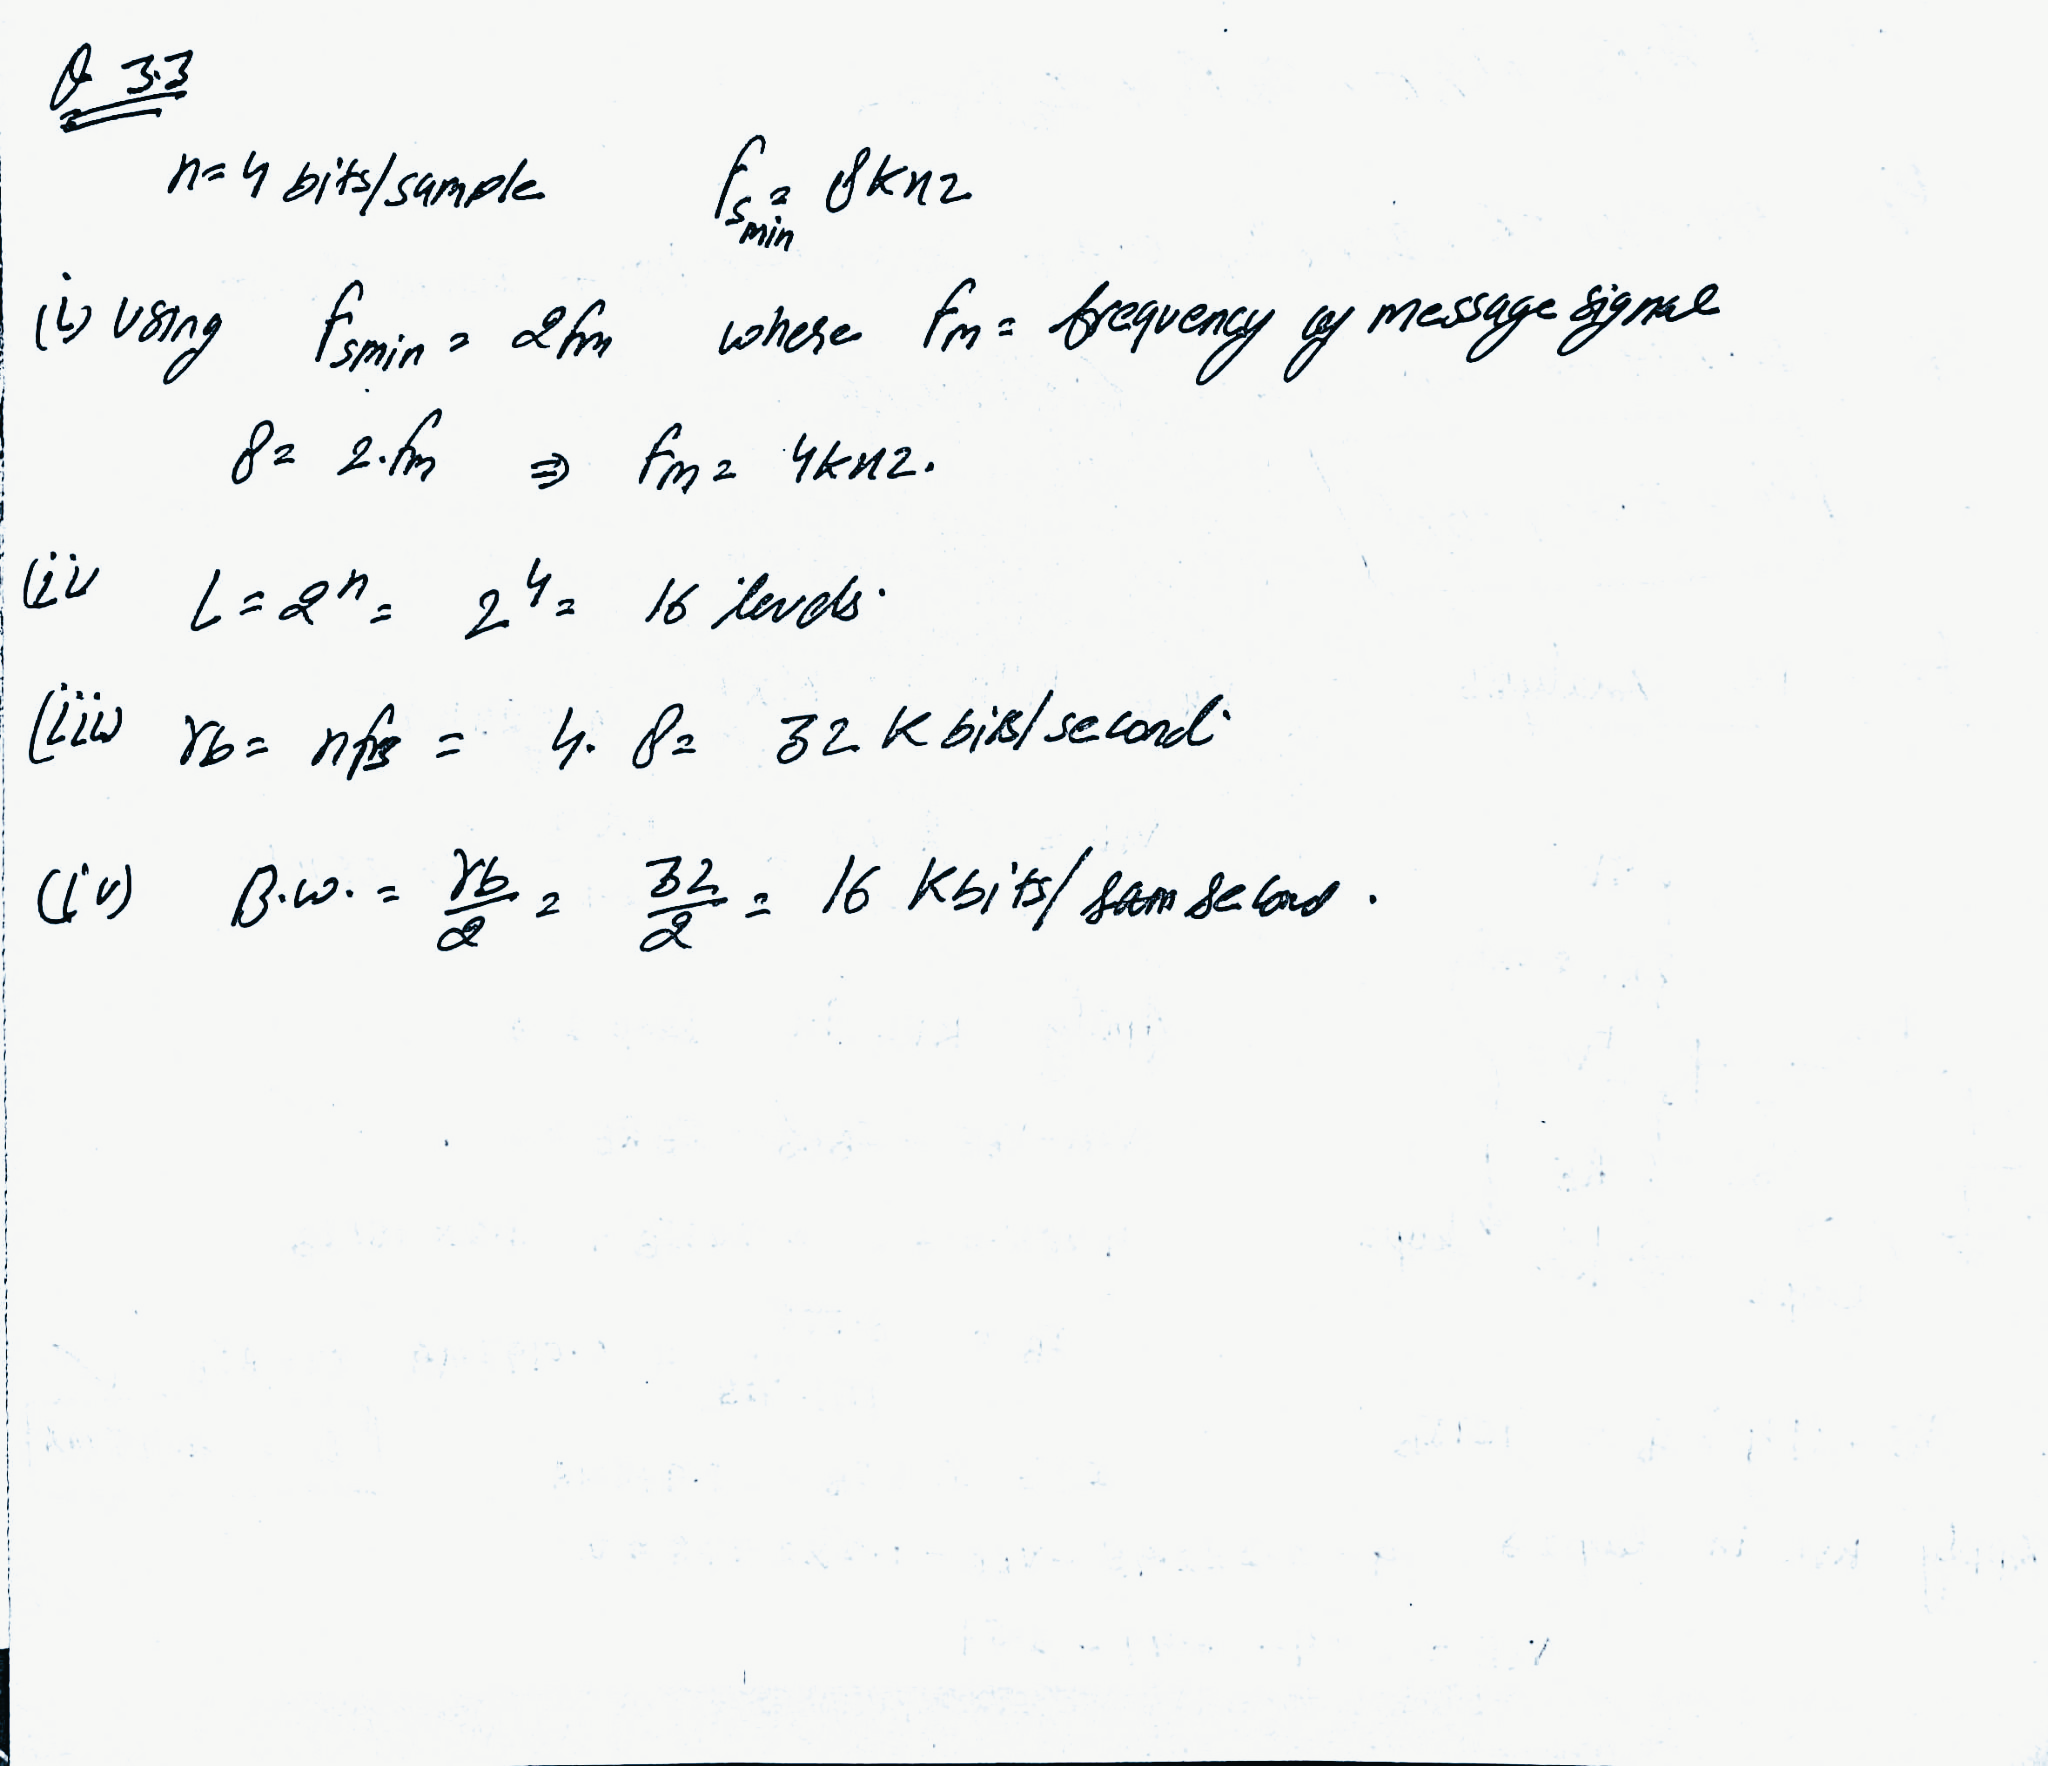 Q 3.3
n = 4 bits/sample fsmin = 8kHz
(i) using fsmin = 2fm where fm = frequency of message signal
8 = 2.fm ⇒ fm = 4kHz.
(ii) L = 2^n = 2^4 = 16 levels.
(iii) rb = nfs = 4. 8 = 32 K bits/second.
(iv) B.W. = rb/2 = 32/2 = 16 Kbits/ second.